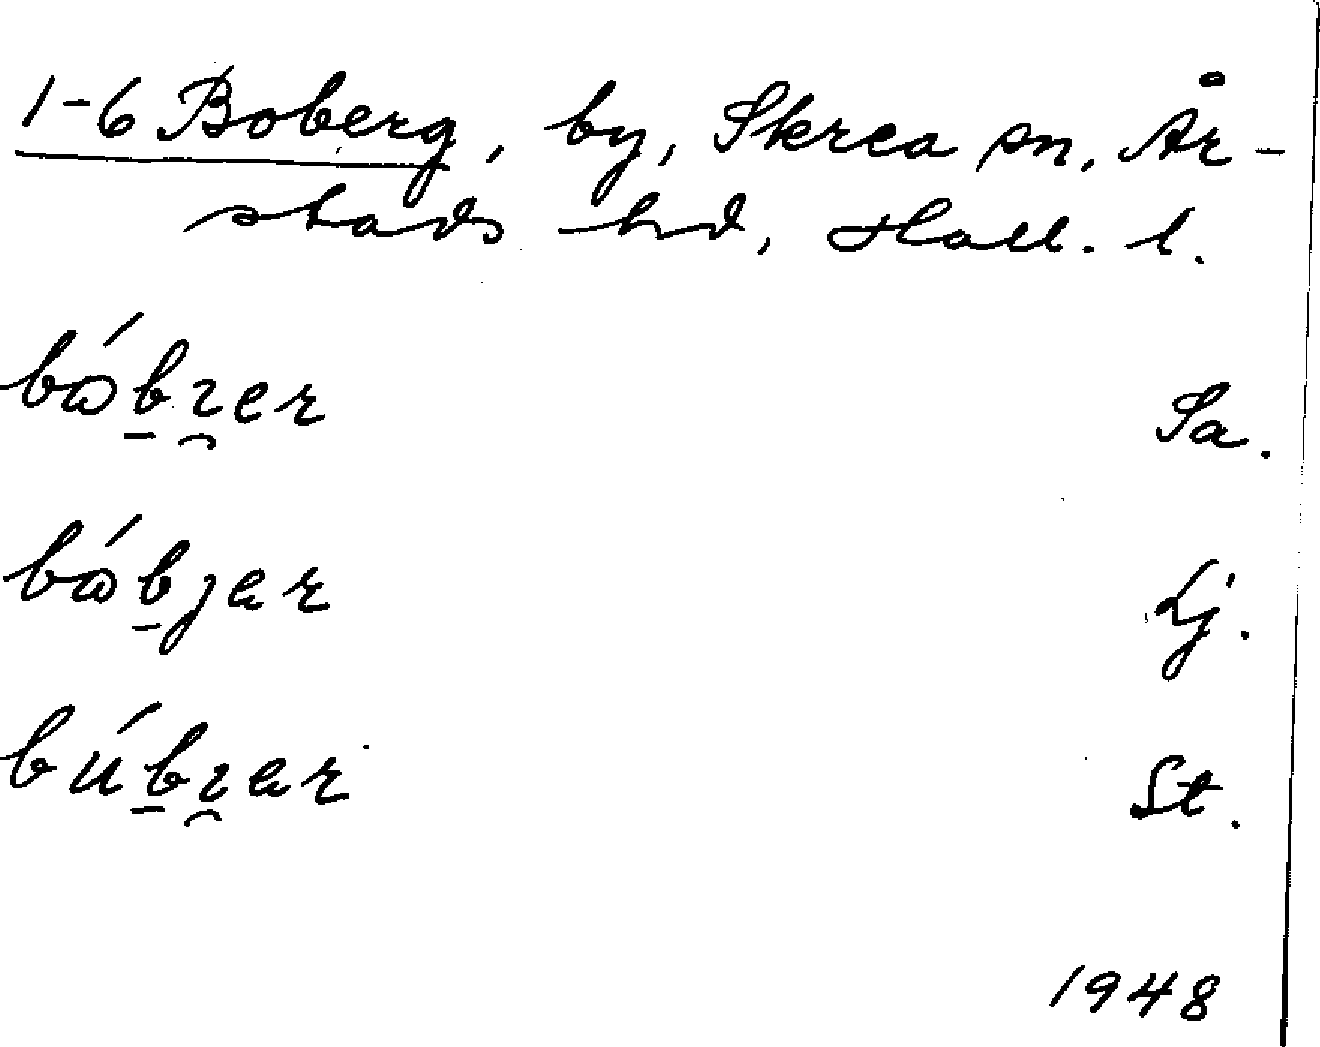 1-6 Boberg, by, Skrea sn, År-
stads hd, Hall. l.
bób̲ı̯er Sa.
bób̲jer Lj.
búb̲ı̯er St.
1948